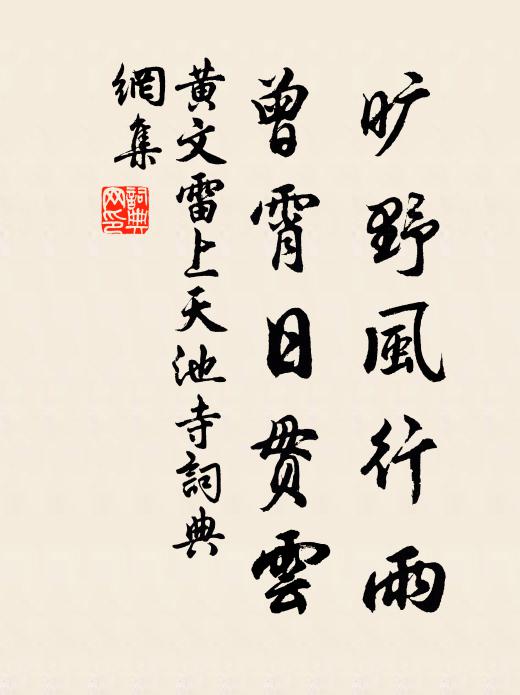 旷野風行雨
曾霄日贯雲
黄文雷上天池寺詞典
網集
詞典
网印